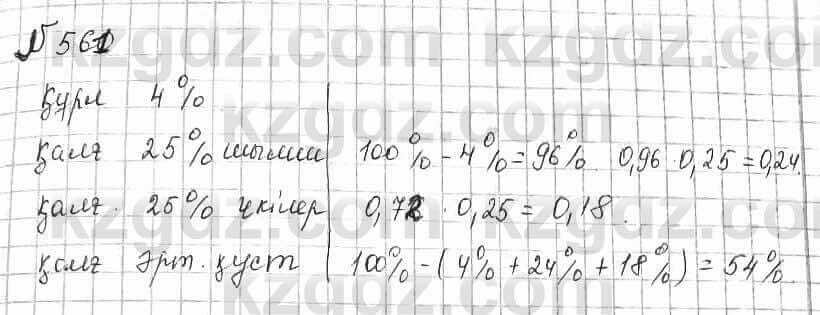 №561
құрл 4%
қалғ 25% шымши 100% - 4% = 96% 0,96 · 0,25 = 0,24.
қалғ. 25% үкілер 0,72 · 0,25 = 0,18.
қалғ әрт. құст 100% - (4% + 24% + 18%) = 54%.